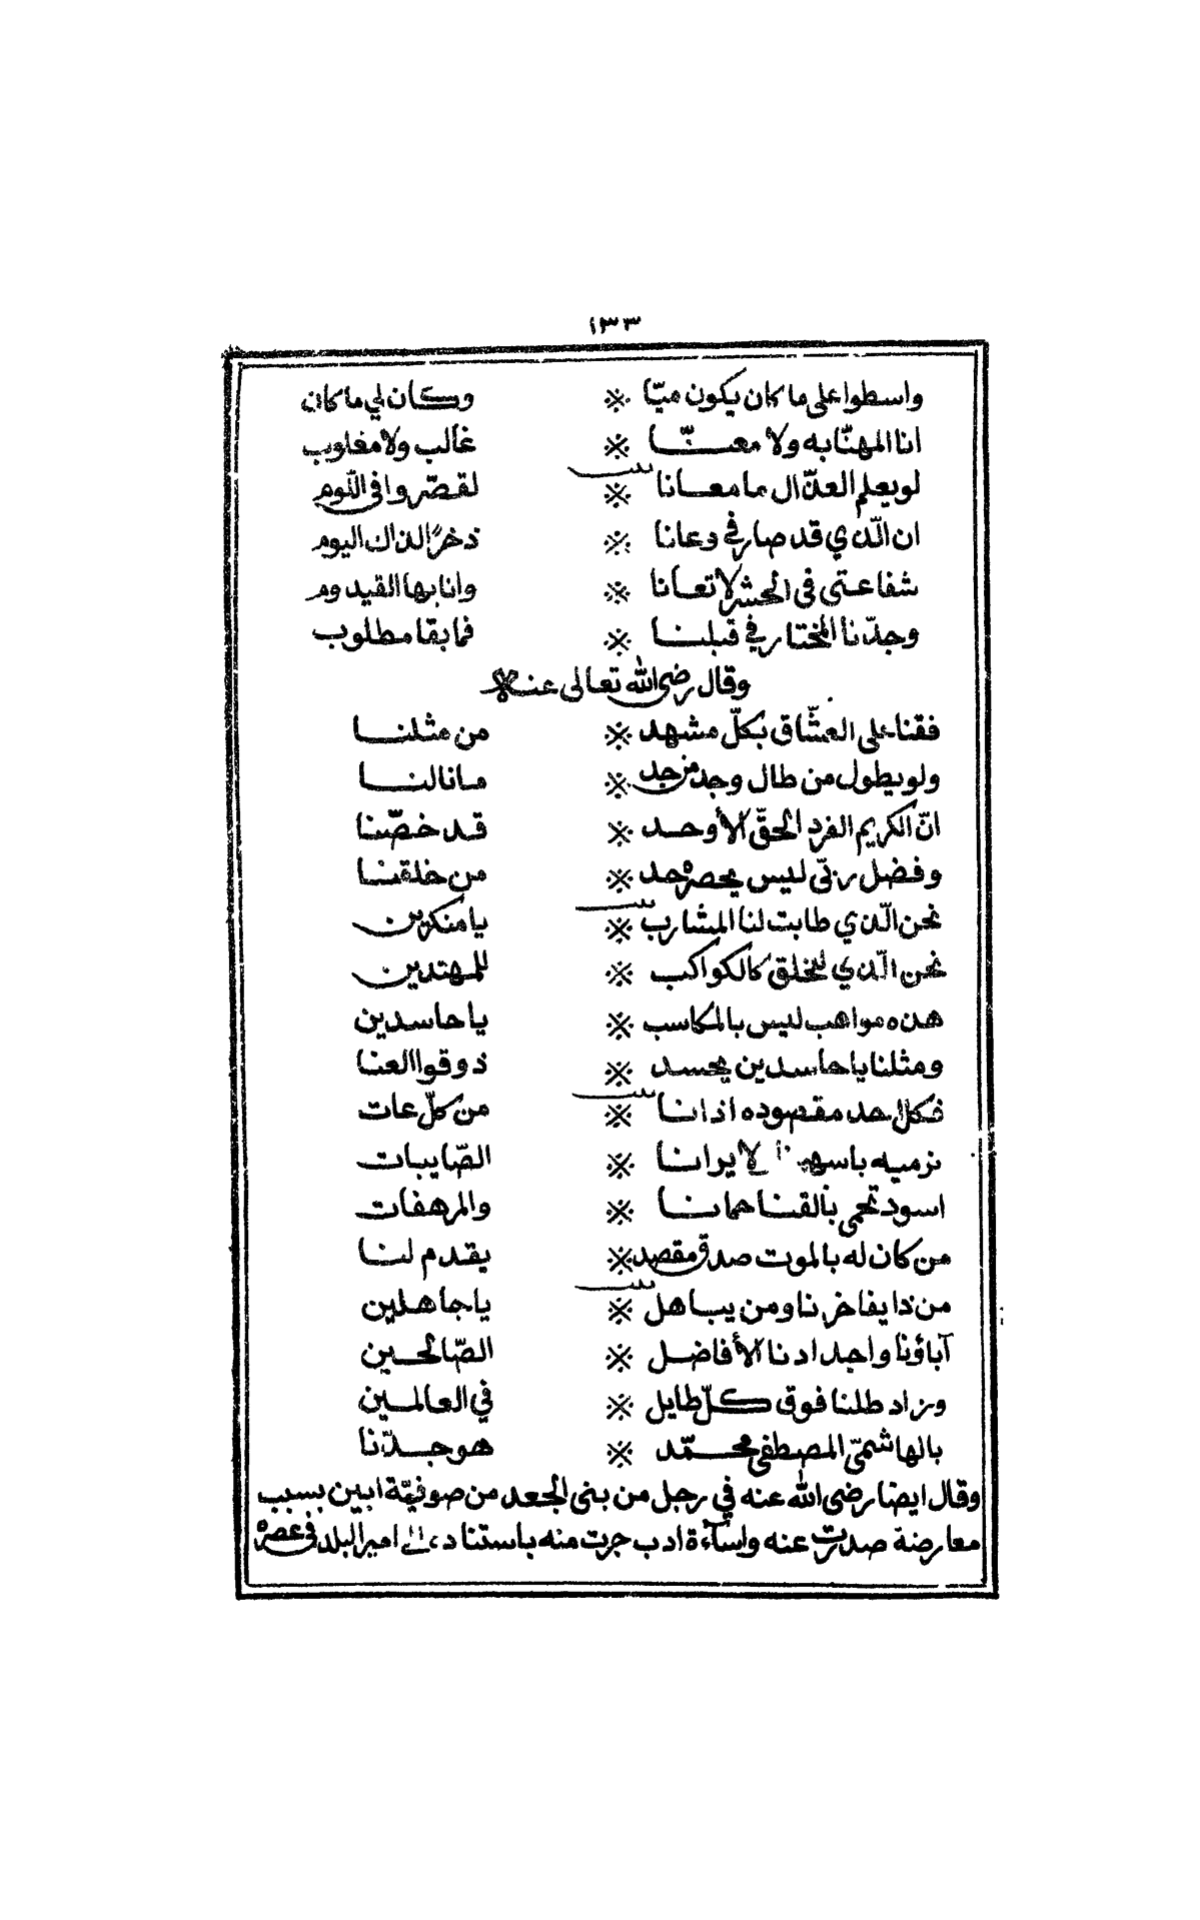 ١٣٣
واسطوا على ما كان يكون ميّا ※ وكان لي ما كان
انا المهنّا به ولا معنّا ※ غالب ولا مغلوب
لو يعلم العذّال ما معانا ※ لقصّروا في اللّوم
ان الّذي قد صار في دعانا ※ ذخرًا لذاك اليوم
شفاعتى فى الحشر لا تعانا ※ وانا بها القيدوم
وجدّنا المختار في قبلنا ※ فما بقا مطلوب
وقال رضى الله تعالى عنه
فقنا على العشّاق بكلّ مشهد ※ من مثلنا
ولو يطول من طال وجد من جد ※ ما نالنا
انّ الكريم الفرد الحقّ الأوحد ※ قد خصّنا
وفضل ربّى ليس يحصره حد ※ من خلقنا
نحن الّذي طابت لنا المشارب ※ يا منكرين
نحن الّذي للخلق كالكواكب ※ للمهتدين
هذه مواهب ليس بالمكاسب ※ يا حاسدين
ومثلنا يا حاسدين يحسد ※ ذوقوا العنا
فكل احد مقصوده اذانا ※ من كلّ عات
نرميه باسهم لا يرانا ※ الصّايبات
اسود تحمي بالقنا حمانا ※ والمرهفات
من كان له بالموت صدق مقصد ※ يقدم لنا
من ذا يفاخرنا ومن يباهل ※ يا جاهلين
آباؤنا واجدادنا الأفاضل ※ الصّالحين
وزاد طلنا فوق كلّ طايل ※ في العالمين
بالهاشميّ المصطفى محمّد ※ هو جدّنا
وقال ايضا رضى الله عنه في رجل من بنى الجعد من صوفيّة ابين بسبب
معارضة صدرت عنه واساءة ادب جرت منه باستناده الى امير البلد في عصره